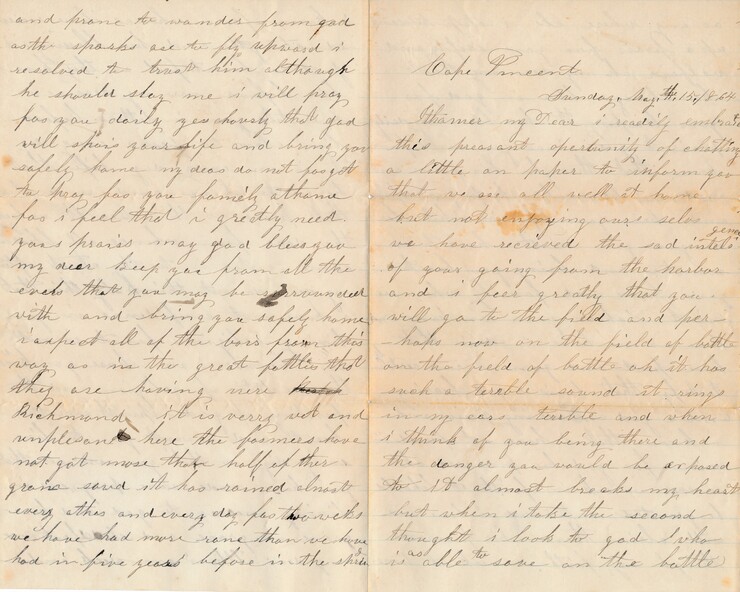 and prone to wander from god
as the sparks are to fly upward i
resolved to trust him although
he should slay me i will pray
for you daily yes hourly that god
will spair your life and bring you
safely home my dear do not forget
to pray for you family athome
for i feel that i greatly need
your prairs may god bless you
my dear keep you from all the
evels that you may be surrounded
with and bring you safely home
i expect all of the bois from this
way as in the great battles that
they are having nere
Richmond it is verry wet and
unplesant here the foarmers have
not got more than half of ther
grane sowd it has rained almost
every other and every day for two weeks
we have had more rane than we have
had in five years before in the spring
Cape Vincent
Sunday, May, th, 15, 1864
Othamer my Dear i readily embrace
this pleasant opertunity of chating
a little on paper to inform you
that we are all well at home
but not enjoying ours selvs
we have recieved the sad inteligence
of your going from the harbor
and i feer greatly that you
will go to the field and per-
-haps now on the field of battle
on the field of battle oh it has
such a terible sound it rings
in my ears terible and when
i think of you being there and
the danger you would be exposed
to it almost breaks my heart
but when i take the second
thought i look to god who
is as able to save on the battle